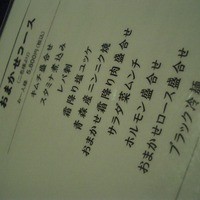 おまかせコース
お一人様
キムチ盛合せ
スタミナ煮込み
レバ刺
霜降り塩ユッケ
青森産ニンニク焼
おまかせ霜降り肉盛合せ
サラダ菜ムンチ
ホルモン盛合せ
おまかせロース盛合せ
ブラック冷麺